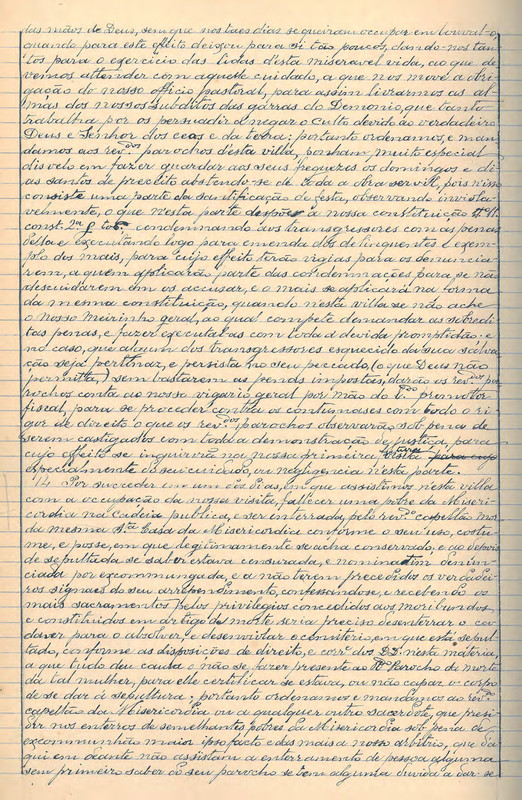 das mãos de Deus, sem que nos taes dias se queiram occupar em louval-o,
quando para este effeito deixou para si tão poucos, dando-nos tan-
tos para o exercicio das lidas d'esta miseravel vida, ao que de-
vemos attender com aquelle cuidado, a que nos move a obri-
gação do nosso officio pastoral, para assim livrarmos as al-
mas dos nossos subditos das garras do Demonio, que tanto
trabalha por os persuadir a negar o culto devido ao verdadeiro
Deus e Senhor dos ceos e da terra: portanto ordenamos, e man-
damos aos rev.dos parochos d'esta villa, ponham, muito especial
disvelo em fazer guardar aos seus freguezes os domingos e di-
as santos de preceito abstendo-se de toda a obra servil, pois n'isso
consiste uma parte da santificação da festa, observando inviola-
velmente, o que n'esta parte despõe a nossa constituição tt.
const. 2.ª § condemnando aos transgressores com as penas
d'ella e executando logo para emenda dos delinquentes e exem-
plo dos mais, para cujo effeito terão vigias para os denuncia-
rem, a quem applicarão parte das condemnações, para se não
descuidarem em os accusar, e o mais se applicará na forma
da mesma constituição, quando n'esta villa se não ache
o nosso Meirinho geral, ao qual compete demandar as sobredi-
tas penas, e fazer executal-as com toda a devida promptidão: e
no caso, que algum dos transgressores esquecido da sua salva-
ção seja pertinaz, e persista no seu peccado, (o que Deus não
permitta,) sem bastarem as penas impostas, darão os rev.dos pa-
rochos conta ao nosso vigario geral por mão do r.do promotor
fiscal, para se proceder contra os contumases com todo o ri-
gor de direito o que os rev.dos parochos observarão sob pena de
serem castigados com toda a demonstração de justiça, para
cujo effeito se inquirirá na nossa primeira visita para cujo
especialmente o seu cuidado, ou negligencia n'esta parte.
14 Por succeder em um dos dias, em que assistimos n'esta villa
com a occupação da nossa visita, fallecer uma pobre da Miseri-
cordia na Cadeia publica, e ser enterrada, pelo rev.do capellão mor
da mesma S.ta Casa da Misericordia conforme o seu uso, costu-
me, e posse, em que legitimamente se acha conservado, e ao depois
de sepultada se saber estava censurada, e nominatim denun-
ciada por excommungada, e a não terem precedidos os verdadei-
ros signaes do seu arrependimento, confessando-se, e recebendo os
mais sacramentos pelos privilegios concedidos aos moribundos
e constituidos em artigo de morte seria preciso desenterrar o ca-
daver para o absolver, e desenviolar o cemiterio, em que está sepul-
tado, conforme as disposições de direito, e com.e dos D.D. n'esta materia,
a que tudo deu causa o não se fazer presente ao R.do Parocho da morte
da tal mulher, para elle certificar se estava, ou não capaz o corpo
de se dar á sepultura: portanto ordenamos e mandamos ao rev.do
capellão da Misericordia ou a qualquer outro sacerdote, que presi-
dir nos enterros de semelhantes pobres da Misericordia sob pena de
excommunhão maior ipso facto e das mais a nosso arbitrio, que d'a-
qui em deante não assistam a enterramento de pessoa alguma
sem primeiro saber do seu parocho se tem alguma duvida a dar-se